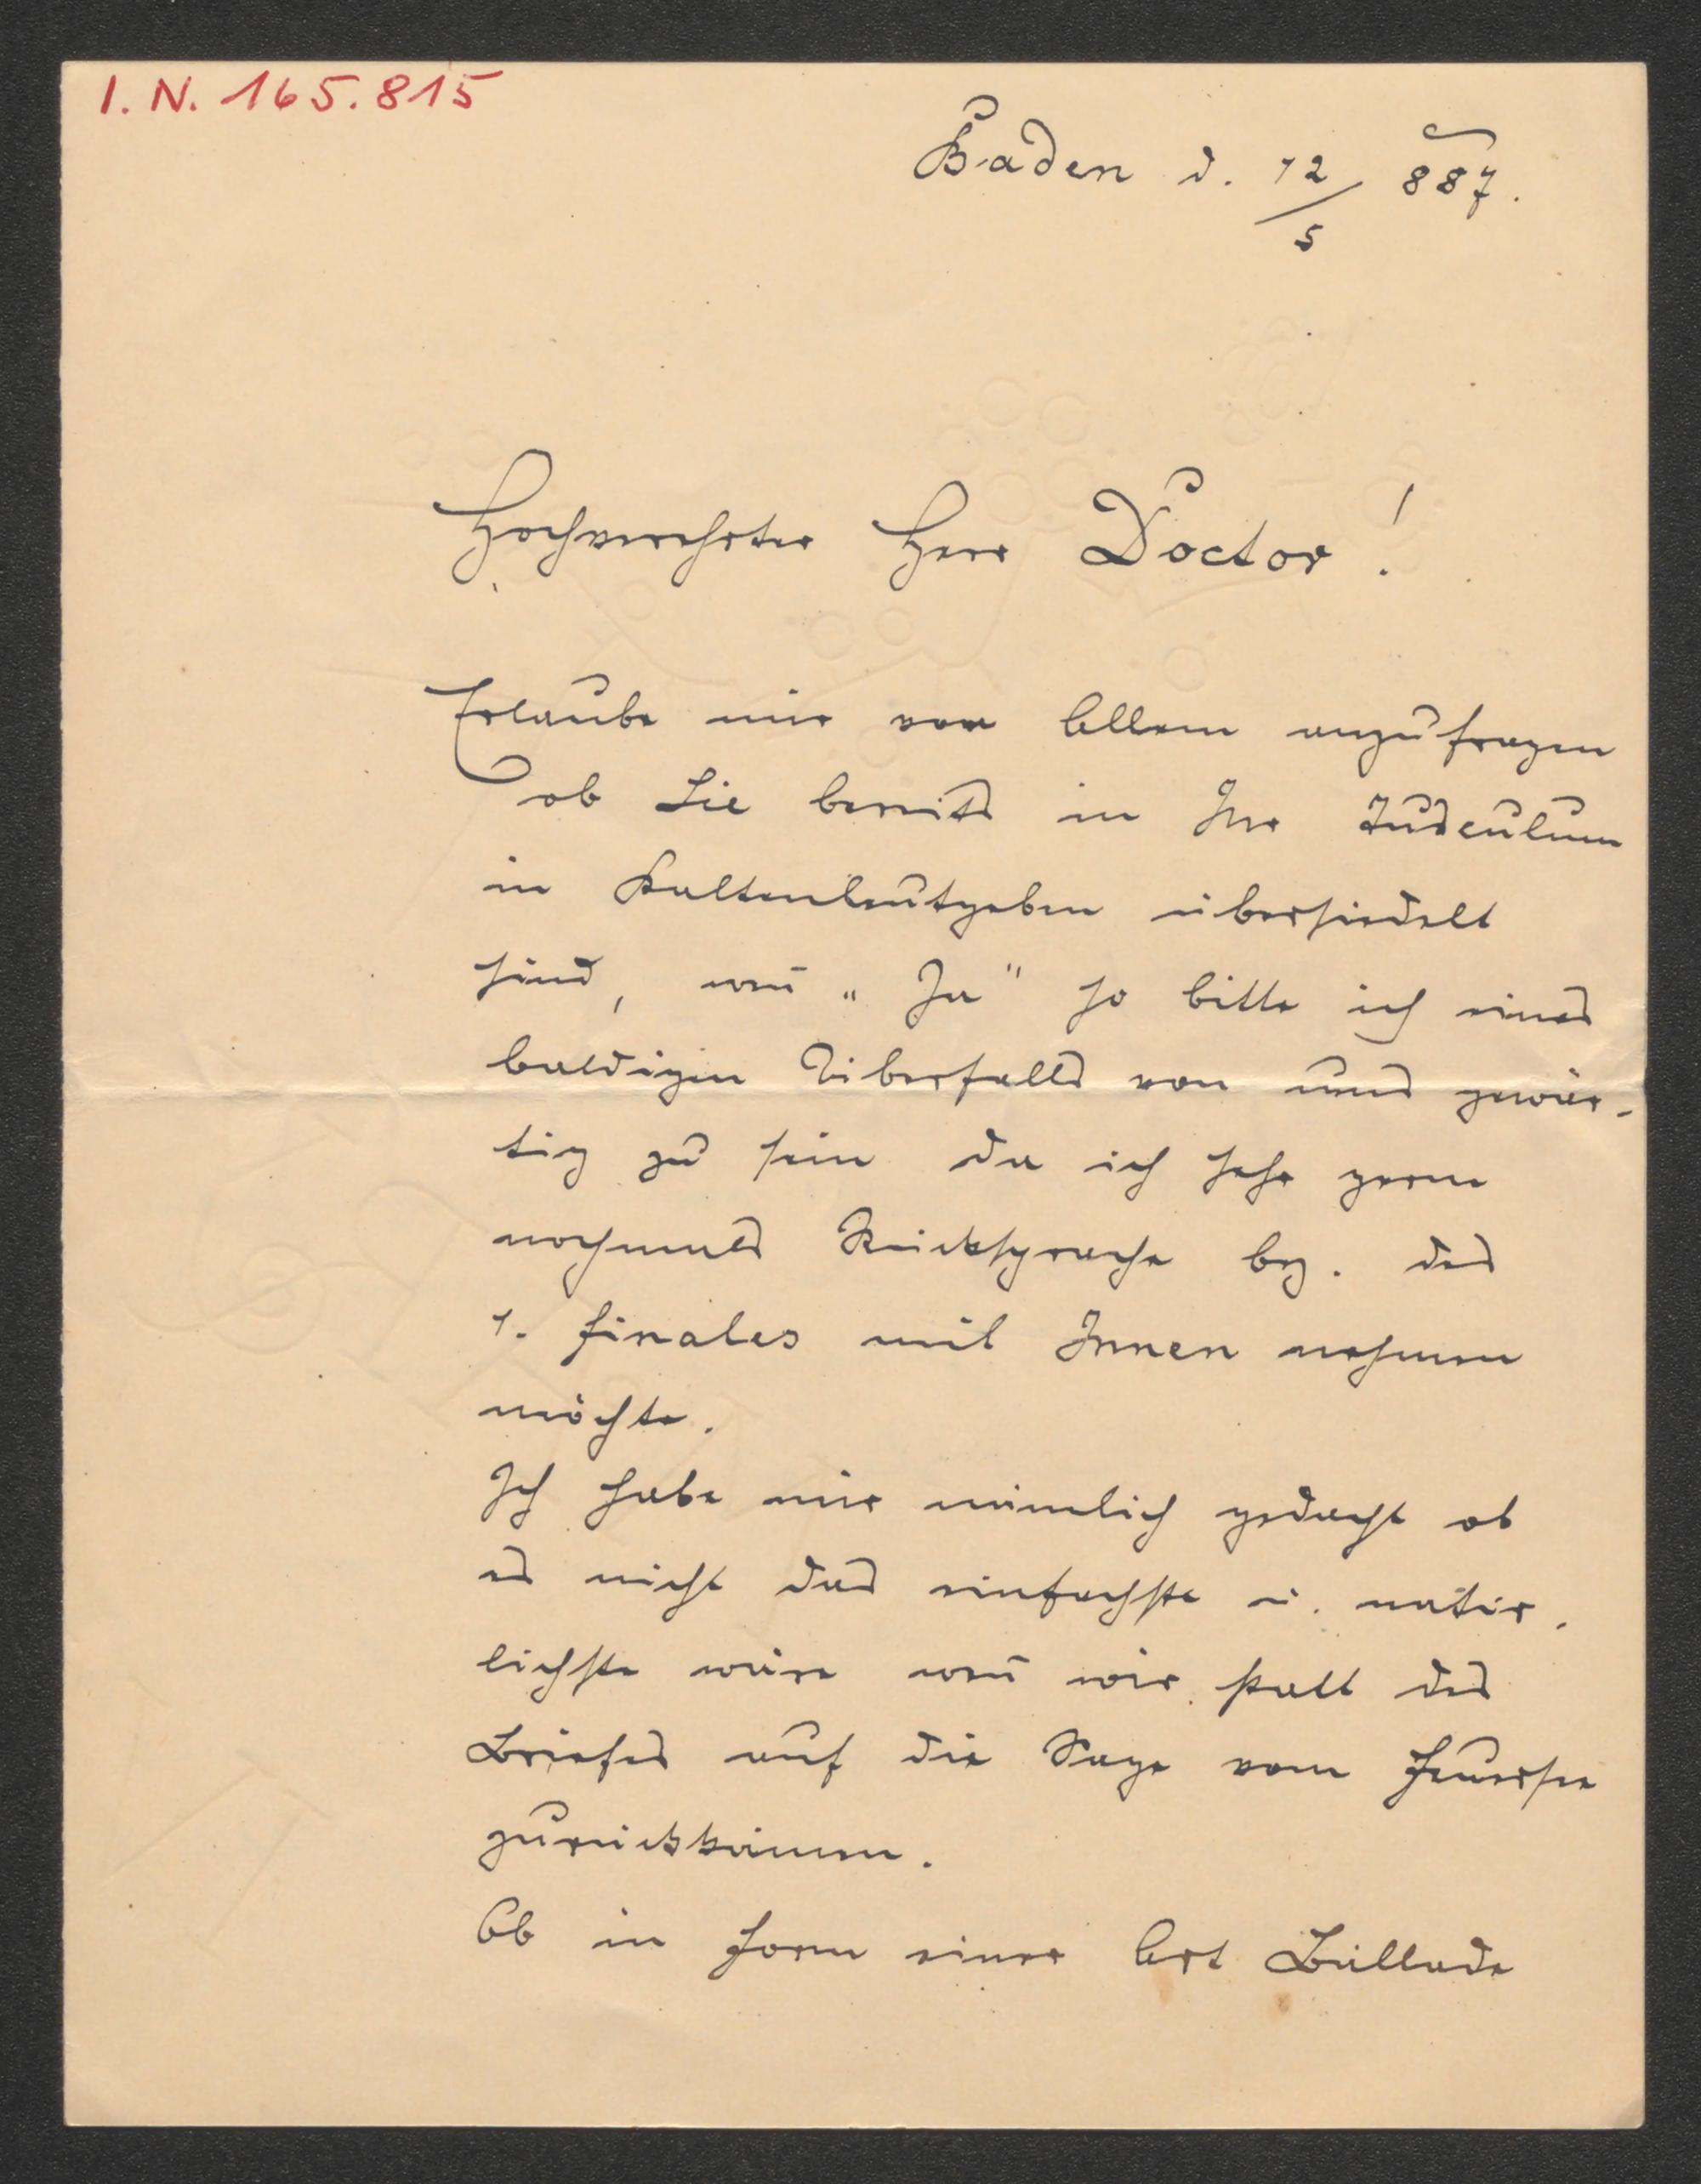 I. N. 165.815
Baden d. 12/5 887.
Hochverehrter Herr Doctor!
Erlaube mir vor Allem anzufragen
ob Sie bereits in Ihr Tusculum
in Kaltenleutgeben übersiedelt
sind, wen̄ „Ja" so bitte ich eines
baldigen Überfalls von uns gewär-
tig zu sein da ich sehr gerne
nochmals Rücksprache bez. des
1. finales mit Ihnen nehmen
möchte.
Ich habe mir nämlich gedacht ob
es nicht das einfachste u. natür-
lichste wäre wen̄ wir statt des
Briefes auf die Sage vom Feuersee
zurückkämen.
Ob in Form einer Art Ballade